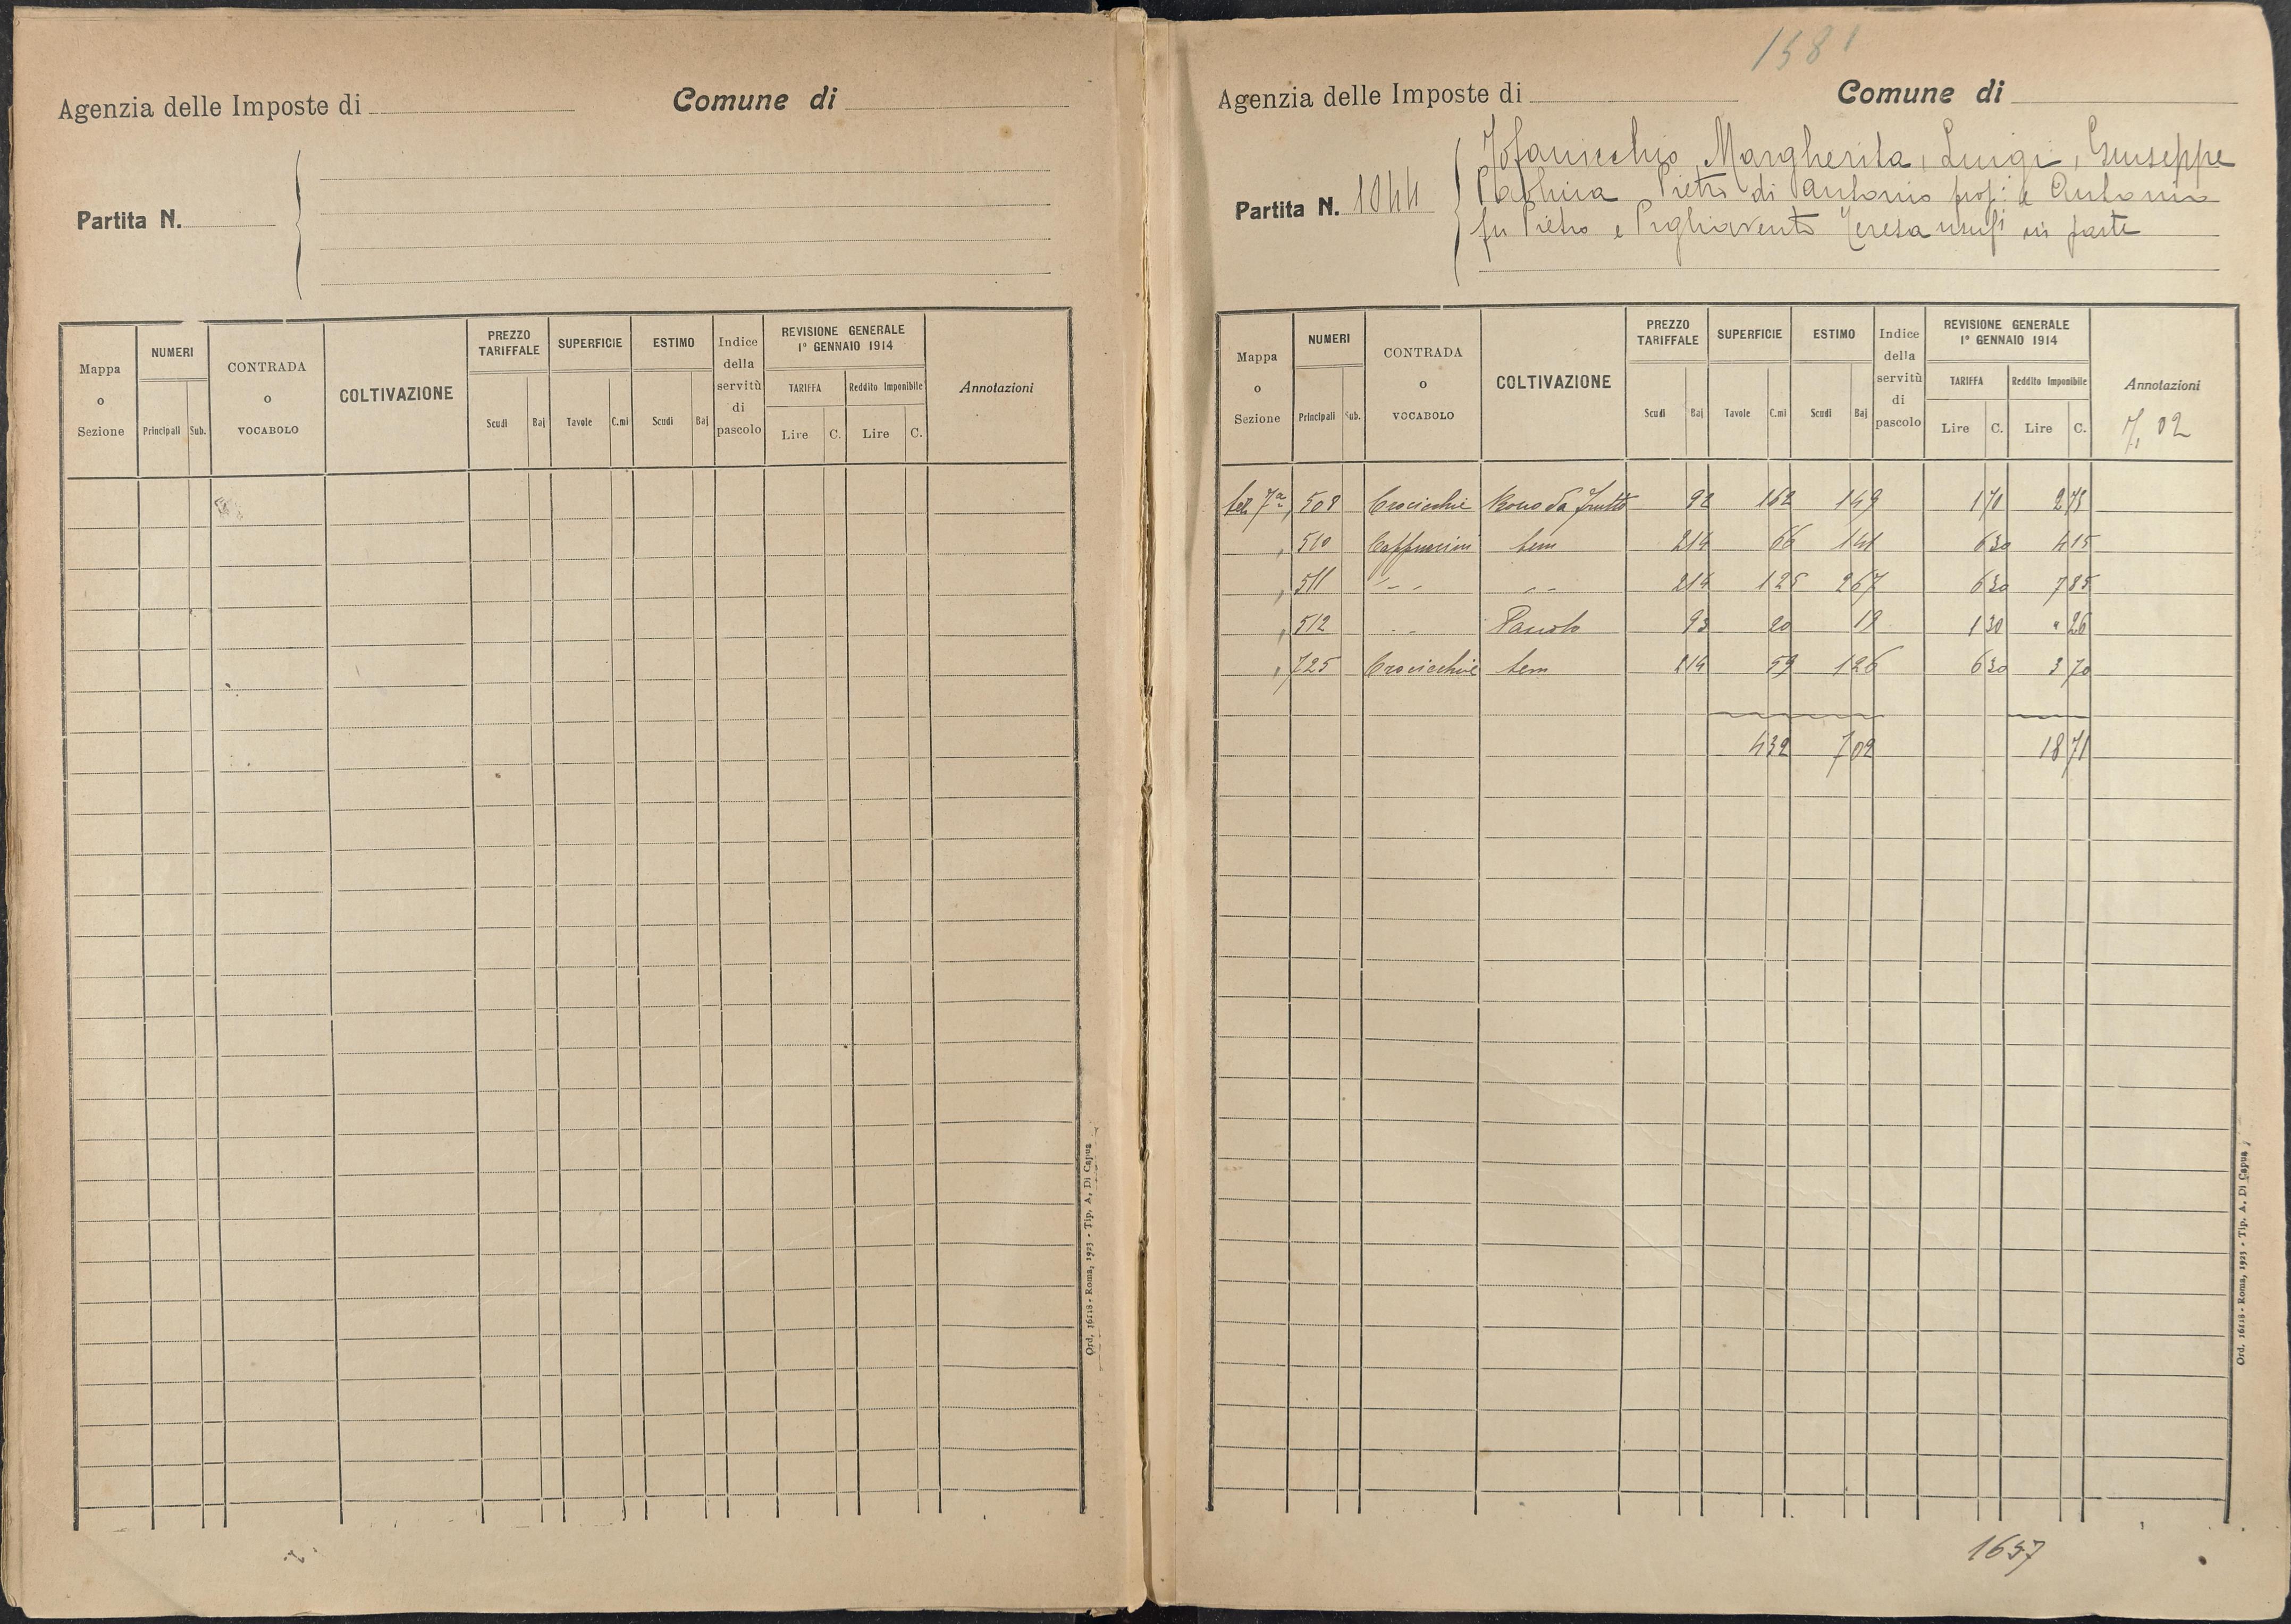 Agenzia delle Imposte di Comune di
Partita N.
Mappa o Sezione NUMERI Principali Sub. CONTRADA o VOCABOLO COLTIVAZIONE PREZZO TARIFFALE Scudi Baj SUPERFICIE Tavole C.mi ESTIMO Scudi Baj Indice della servitù di pascolo REVISIONE GENERALE 1° GENNAIO 1914 TARIFFA Lire C. Reddito Imponibile Lire C. Annotazioni
Ord. 16118 - Roma, 1923 - Tip. A. Di Capua
1581
Agenzia delle Imposte di Comune di
Margherita, Luigi, Giuseppe
Partita N. 1044 Pietro di Antonio prop: e Antonio
fu Pietro e Pigliavento Teresa usuf in parte
Mappa o Sezione NUMERI Principali Sub. CONTRADA o VOCABOLO COLTIVAZIONE PREZZO TARIFFALE Scudi Baj SUPERFICIE Tavole C.mi ESTIMO Scudi Baj Indice della servitù di pascolo REVISIONE GENERALE 1° GENNAIO 1914 TARIFFA Lire C. Reddito Imponibile Lire C. Annotazioni
7,02
Sez 7a 508 Crocicchie Bosco da frutto 92 162 149 1 70 2 75
" 510 Cappuccini Sem 214 66 141 6 30 4 15
" 511 " " " " 214 125 267 6 30 7 85
" 512 " " Pascolo 93 20 19 1 30 " 26
" 725 Crocicchie Sem 214 59 126 6 30 3 70
4 32 7 02 18 71
Ord. 16118 - Roma, 1923 - Tip. A. Di Capua
1657